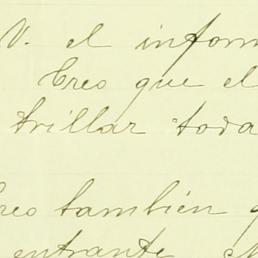 V. el inform
Creo que el
trillar toda
reo también q
entrante